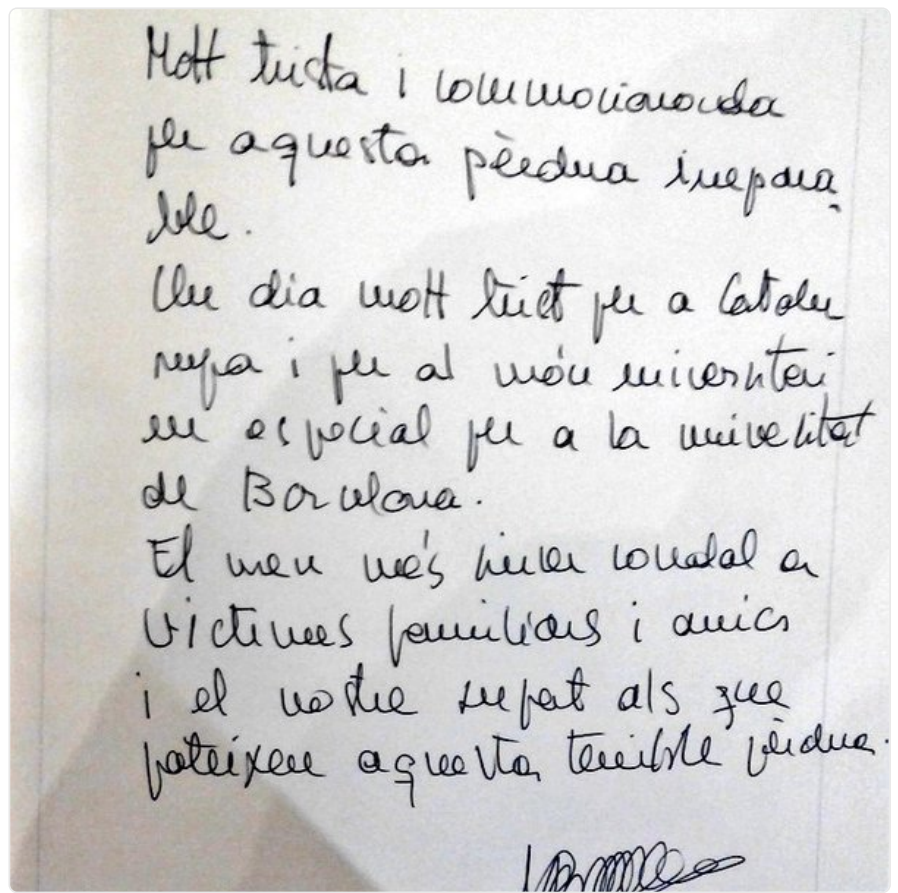 Molt trista i commocionada
per aquesta pèrdua irrepara
ble.
Un dia molt trist per a Catalu
nya i per al món universitari
en especial per a la universitat
de Barcelona.
El meu més sincer condol a
víctimes familiars i amics
i el nostre suport als que
pateixen aquesta terrible pèrdua.